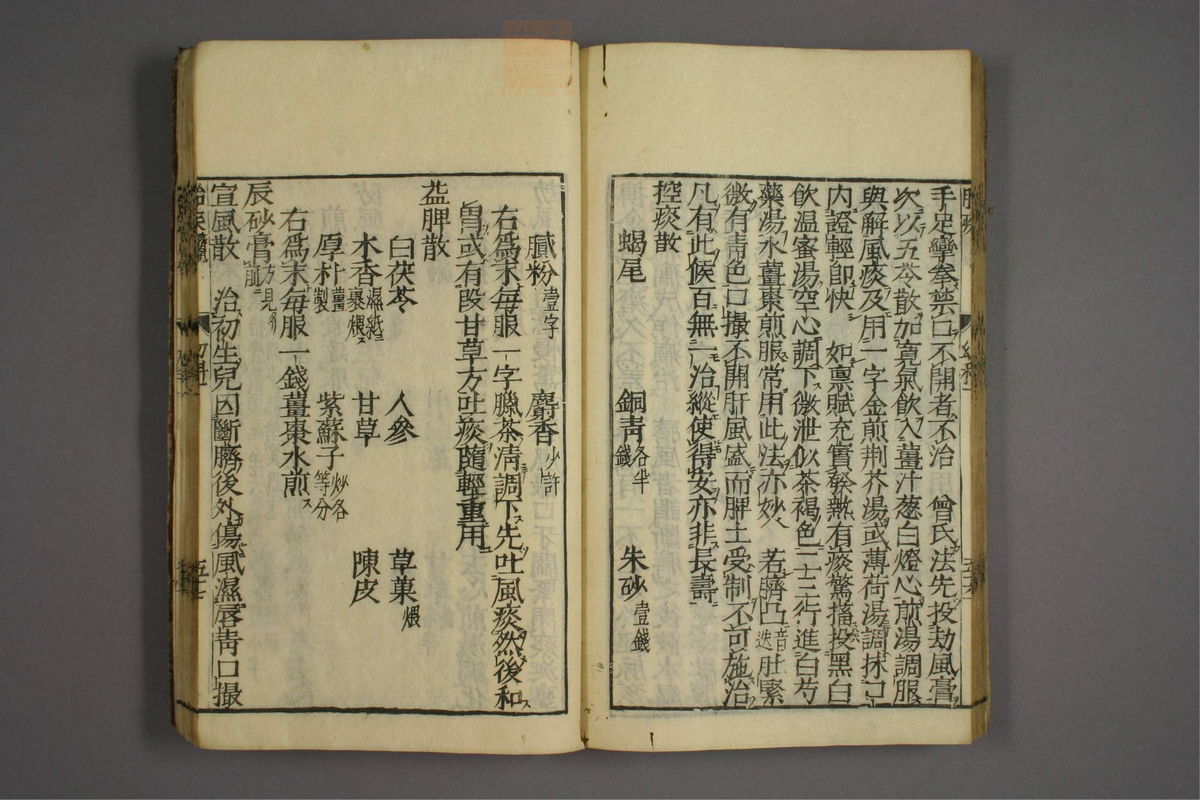 手足攣拳禁口不開者不治　曾氏法先投劫風膏
次以五苓散加寬氣飲入薑汁葱白燈心煎湯調服
與解風痰及用一字金煎荆芥湯或薄荷湯調抹口
内證輕即快　如禀賦充實發熱有痰驚搐投黑白
飲温蜜湯空心調下微泄似茶褐色二三行進白芍
藥湯水薑棗煎服常用此法亦妙　若臍凸音迭肚緊
微有青色口撮不開肝風盛而脾土受制不可施治
凡有此候百無一治縱使得安亦非長壽
控痰散
蝎尾　銅青各半錢　朱砂壹錢
膩粉壹字　麝香少許
右爲末毎服一字臘茶清調下先吐風痰然後和
胃或有段甘草方吐痰隨輕重用
益脾散
白茯苓　人參　草菓煨
木香濕紙裹煨　甘草　陳皮
厚朴薑製　紫蘇子炒各等分
右爲末毎服一錢薑棗水煎
辰砂膏方見
宣風散　治初生兒因斷臍後外傷風濕唇青口撮